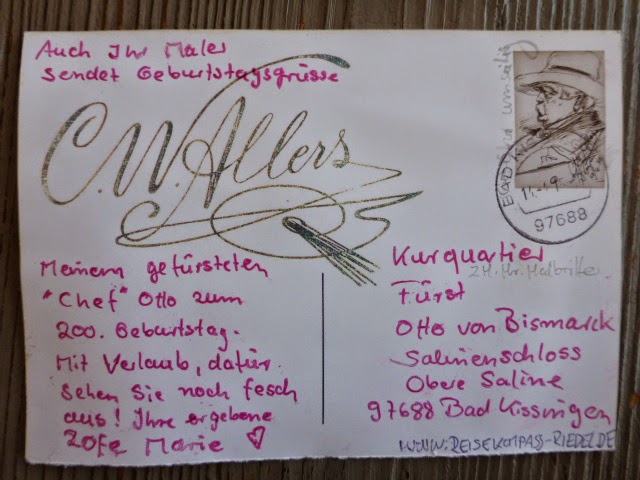 Auch Ihr Maler
sendet Geburtstagsgrüsse
C.W. Allers
Meinem gefürsteten
"Chef" Otto zum
200. Geburtstag.
Mit Verlaub, dafür
sehen Sie noch fesch
aus! Ihre ergebene
Zofe Marie
97688
Kurquartier
Fürst
Otto von Bismarck
Salinenschloss
Obere Saline
97688 Bad Kissingen
WWW.REISEKOMPASS-RIEDEL.DE